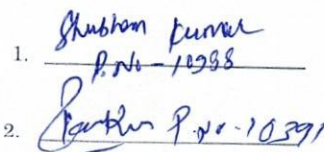 1. Shubham Kumar
P.No - 10398
2. P.No - 10391